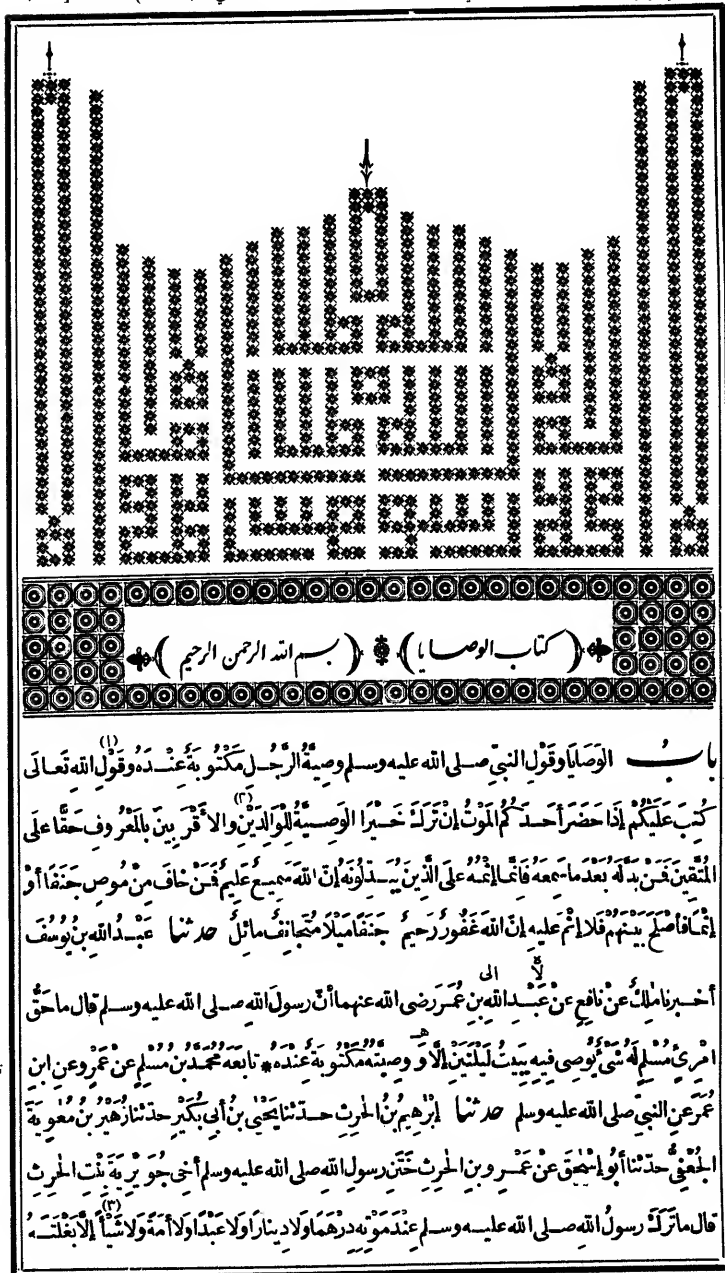 ﴿ كتاب الوصايا ﴾ ﴿ بسم الله الرحمن الرحيم ﴾
بابُ الوَصَايَا وَقَوْلِ النبيِّ صلى الله عليه وسلم وصِيَّةُ الرَّجُلِ مَكْتُوبَةٌ عِنْدَهُ (١) وقَوْلِ اللهِ تَعالَى
كُتِبَ عَلَيْكُمْ إذَا حَضَرَ أحَدَكُمُ المَوْتُ إنْ تَرَكَ خَيْرًا (٢) الوَصِيَّةُ لِلْوَالِدَيْنِ والأَقْرَبِينَ بالمَعْرُوفِ حَقًّا علَى
المُتَّقِينَ فَمَنْ بَدَّلَهُ بَعْدَما سَمِعَهُ فَإنَّما إثْمُهُ علَى الَّذِينَ يُبَدِّلُونَهُ إنَّ اللهَ سَمِيعٌ عَلِيمٌ فَمَنْ خافَ مِنْ مُوصٍ جَنَفًا أوْ
إثْمًا فأصْلَحَ بَيْنَهُمْ فَلا إثْمَ عليهِ إنَّ اللهَ غَفُورٌ رَحِيمٌ جَنَفًا مَيْلًا مُتَجانِفٌ مائِلٌ حدثنا عَبْدُ اللهِ بنُ يُوسُفَ
لا الى
أخبرنا مٰلِكٌ عنْ نافِعٍ عنْ عَبْدِ اللهِ بنِ عُمَرَ رضى الله عنهما أنَّ رسولَ اللهِ صلى الله عليه وسلم قال ما حَقُّ
امْرِئٍ مُسْلِمٍ لَهُ شَيْءٌ يُوصِى فِيهِ يَبِيتُ لَيْلَتَيْنِ إلَّا وَ وصِيَّتُهُ مَكْتُوبَةٌ عِنْدَهُ * تابَعَهُ مُحَمَّدُ بنُ مُسْلِمٍ عنْ عَمْرٍو عنِ ابنِ
عُمَرَ عنِ النبيِّ صلى الله عليه وسلم حدثنا إبْرٰهِيمُ بنُ الحٰرِثِ حدّثنا يَحْيَى بنُ أبِى بُكَيْرٍ حدّثنا زُهَيْرُ بنُ مُعٰوِيَةَ
الجُعْفِىُّ حدّثنا أبُو إسْحٰقَ عنْ عَمْرِو بنِ الحٰرِثِ خَتَنِ رسولِ اللهِ صلى الله عليه وسلم أخِى جُوَيْرِيَةَ بِنْتِ الحٰرِثِ
قال ما تَرَكَ رسولُ اللهِ صلى الله عليه وسلم عِنْدَ مَوْتِهِ دِرْهَمًا ولا دِينارًا ولا عَبْدًا ولا أمَةً ولا شَيْأً (٣) إلَّا بَغْلَتَهُ